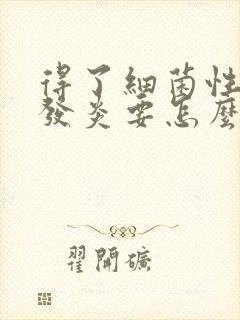 得了細菌性
發炎要怎麼
翟開礦